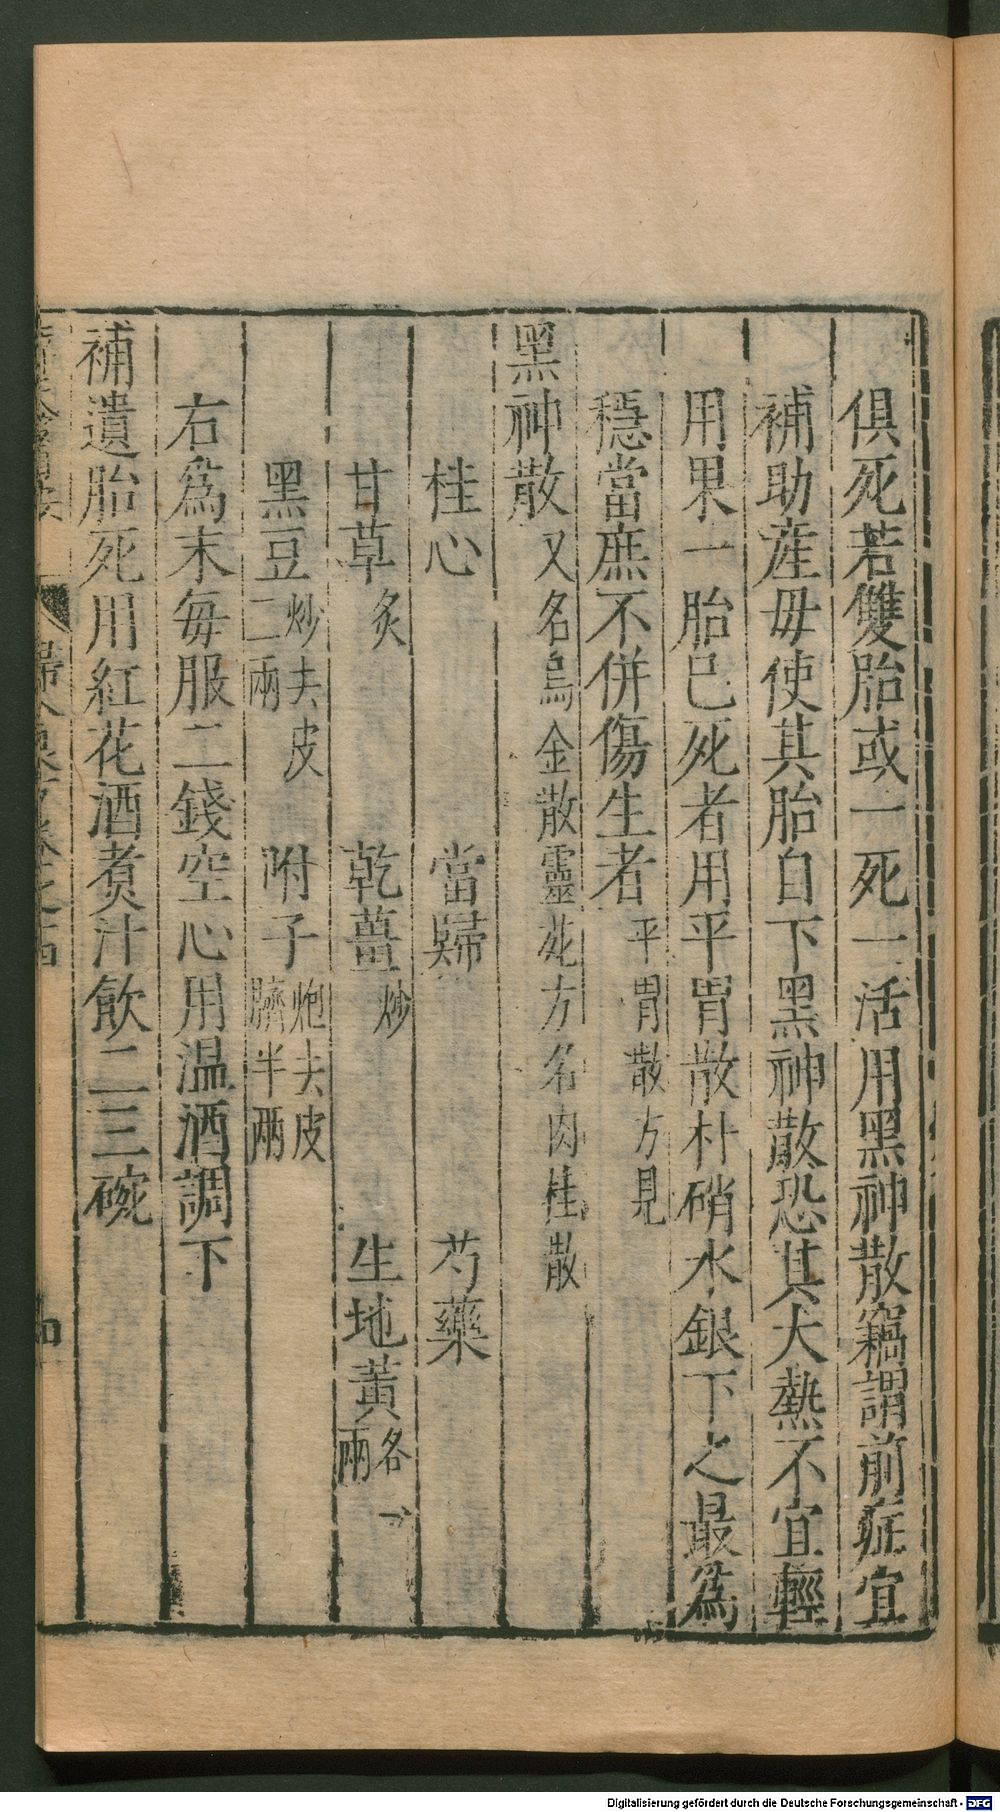 俱死若雙胎或一死一活用黑神散竊謂前症宜
補助産毋使其胎自下黑神散恐其大熱不宜輕
用果一胎已死者用平胃散朴硝水銀下之最爲
穩當庶不併傷生者平胃散方見
黑神散又名烏金散靈苑方名肉桂散
桂心 當歸 芍藥
甘草炙 乾薑炒 生地黃各一兩
黑豆炒去皮二兩 附子炮去皮臍半兩
右爲末每服二錢空心用温酒調下
補遺胎死用紅花酒煑汁飲二三碗
Digitalisierung gefördert durch die Deutsche Forschungsgemeinschaft - DFG